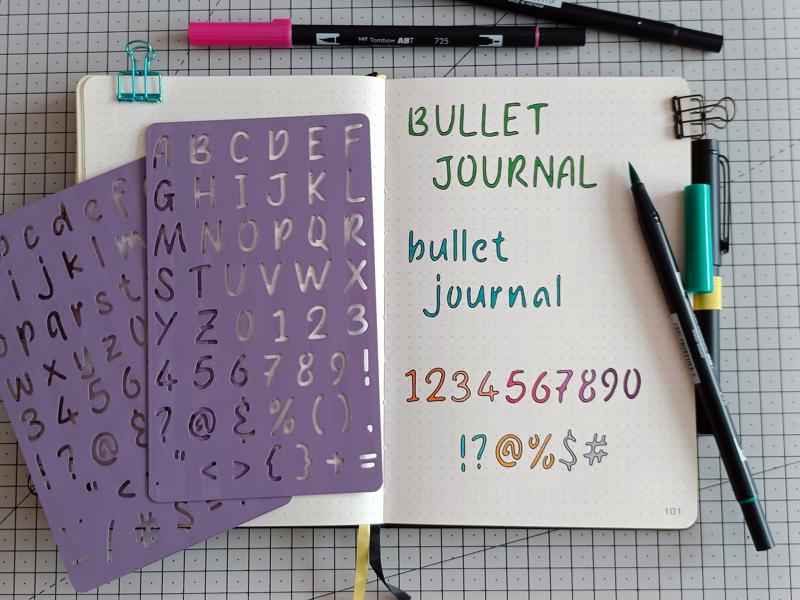 Tombow ABT 725
A B C D E F
G H I J K L
M N O P Q R
S T U V W X
Y Z 0 1 2 3
4 5 6 7 8 9 !
? @ & % ( ) .
" < > { } + =
c d e f
i j k l m
o p q r s t
w x y z 0
3 4 5 6
! ? @ &
" <
/ # $
BULLET
JOURNAL
bullet
journal
1234567890
!?@%$#
101